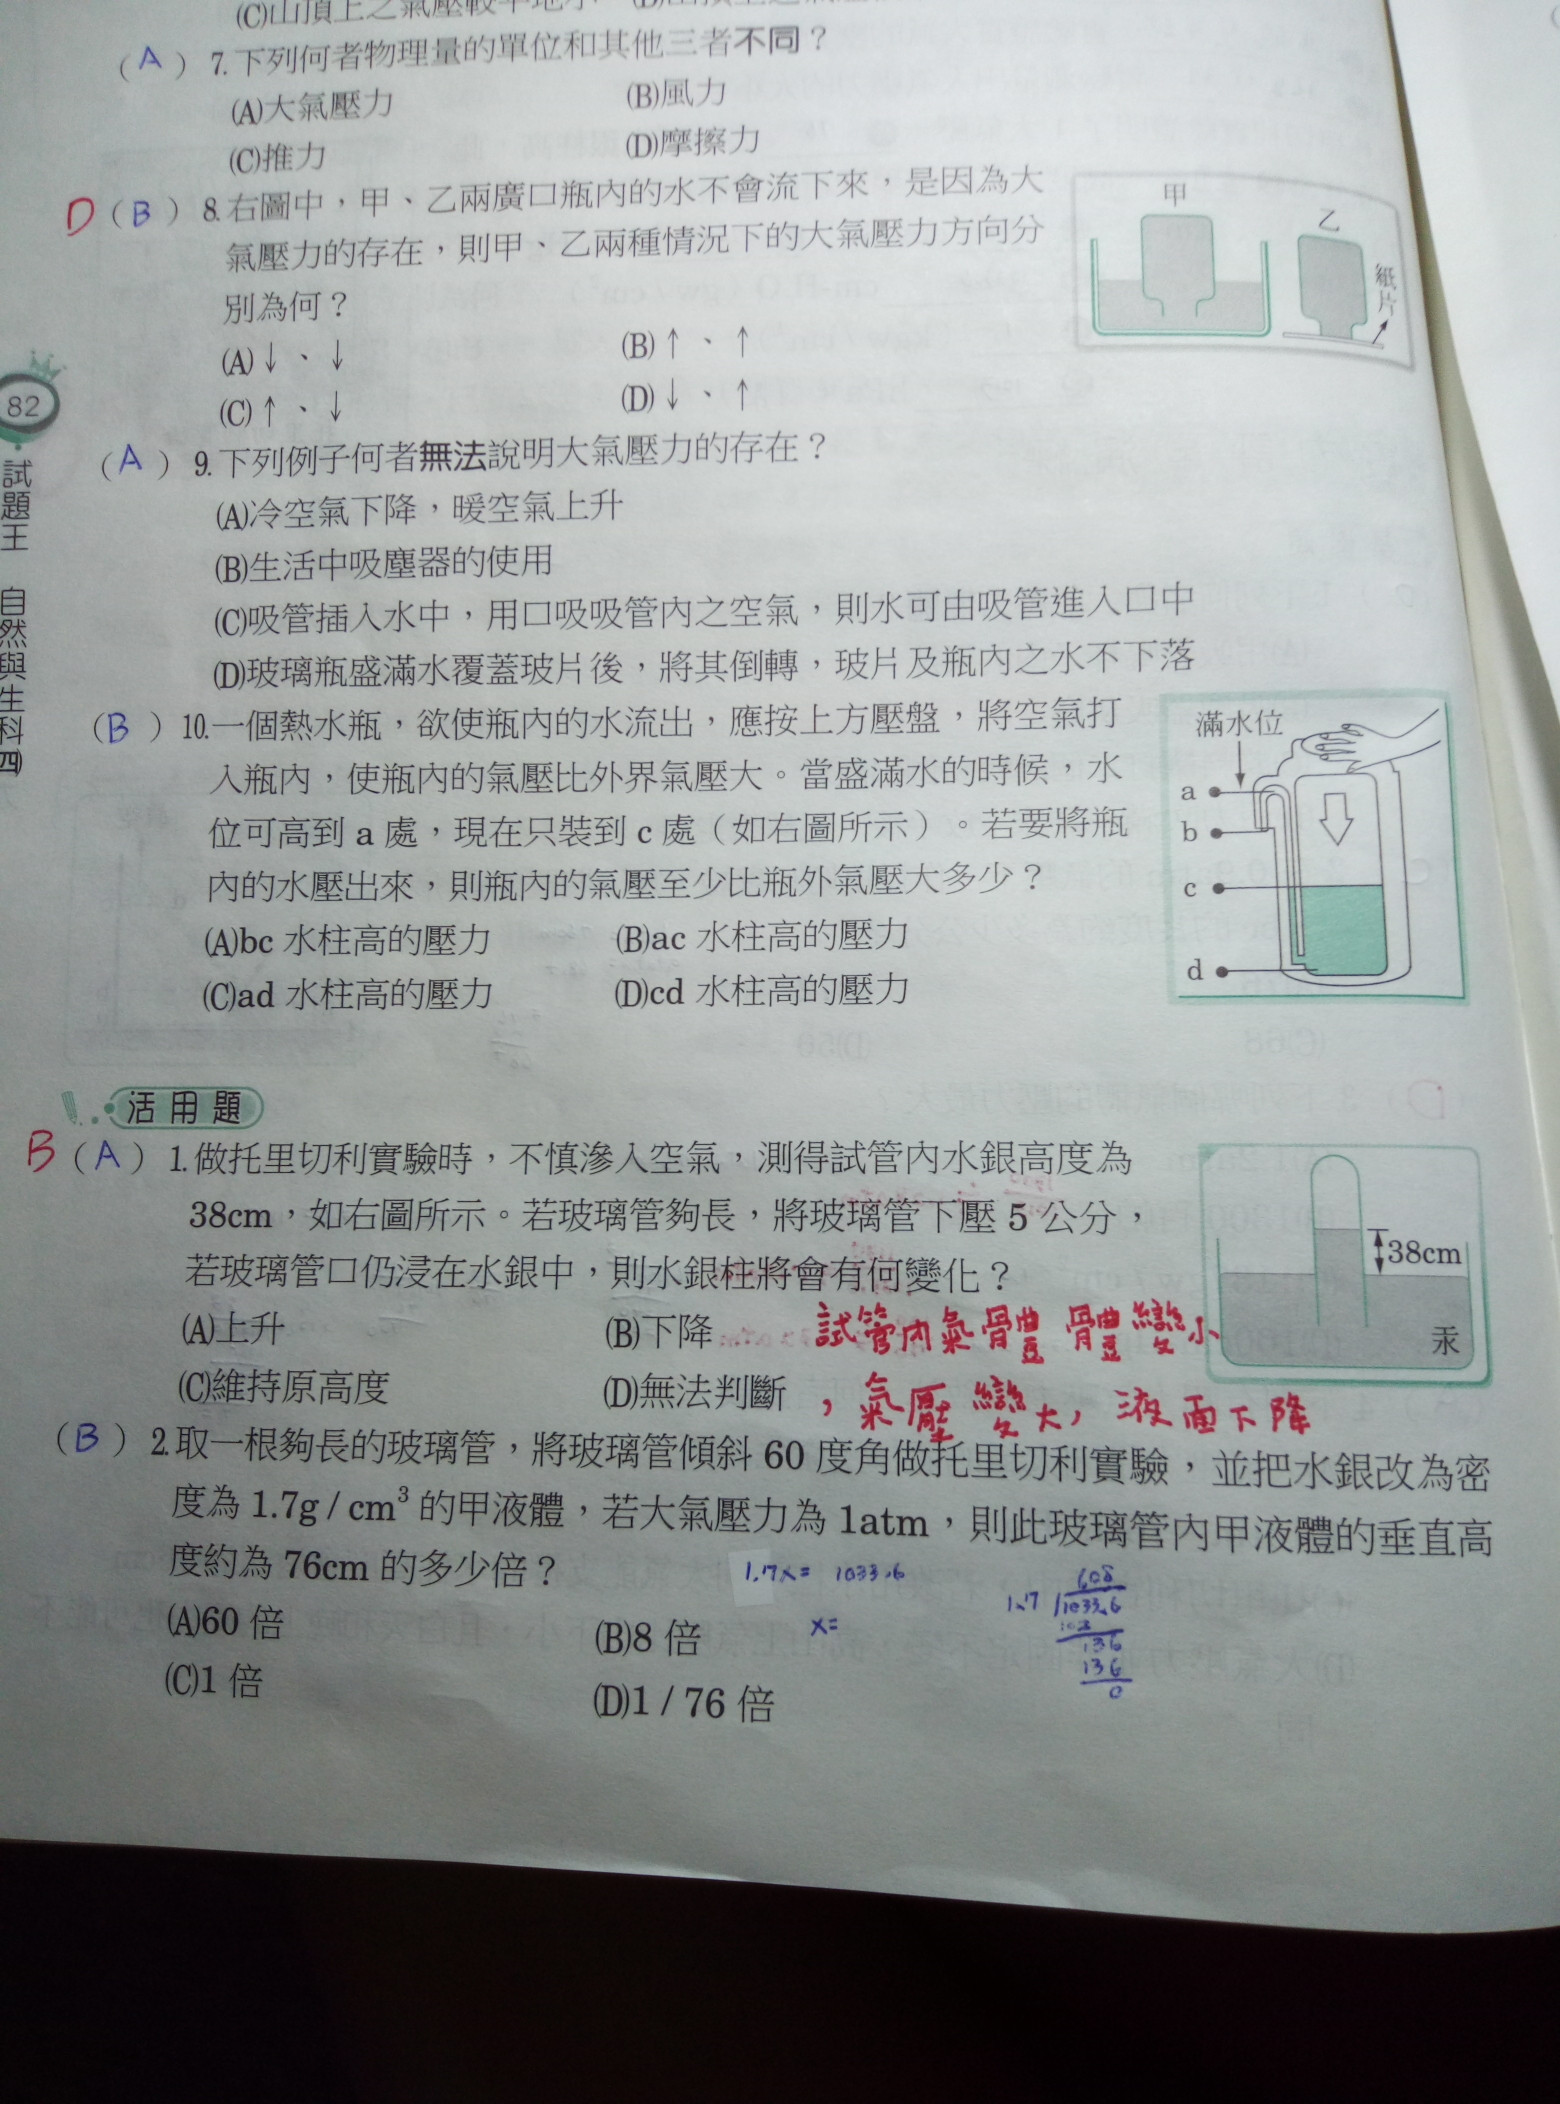 (C)山頂上之氣壓較平地小
(A) 7. 下列何者物理量的單位和其他三者不同？
(A)大氣壓力 (B)風力
(C)推力 (D)摩擦力
D (B) 8. 右圖中，甲、乙兩廣口瓶內的水不會流下來，是因為大
氣壓力的存在，則甲、乙兩種情況下的大氣壓力方向分
別為何？
(A)↓、↓ (B)↑、↑
(C)↑、↓ (D)↓、↑
甲
乙
紙片
82
試題王 自然與生科(四)
(A) 9. 下列例子何者無法說明大氣壓力的存在？
(A)冷空氣下降，暖空氣上升
(B)生活中吸塵器的使用
(C)吸管插入水中，用口吸吸管內之空氣，則水可由吸管進入口中
(D)玻璃瓶盛滿水覆蓋玻片後，將其倒轉，玻片及瓶內之水不下落
(B) 10. 一個熱水瓶，欲使瓶內的水流出，應按上方壓盤，將空氣打
入瓶內，使瓶內的氣壓比外界氣壓大。當盛滿水的時候，水
位可高到 a 處，現在只裝到 c 處（如右圖所示）。若要將瓶
內的水壓出來，則瓶內的氣壓至少比瓶外氣壓大多少？
(A)bc 水柱高的壓力 (B)ac 水柱高的壓力
(C)ad 水柱高的壓力 (D)cd 水柱高的壓力
滿水位
a
b
c
d
活用題
B (A) 1. 做托里切利實驗時，不慎滲入空氣，測得試管內水銀高度為
38cm，如右圖所示。若玻璃管夠長，將玻璃管下壓 5 公分，
若玻璃管口仍浸在水銀中，則水銀柱將會有何變化？
(A)上升 (B)下降
(C)維持原高度 (D)無法判斷
試管內氣體體變小
，氣壓變大，液面下降
38cm
汞
(B) 2. 取一根夠長的玻璃管，將玻璃管傾斜 60 度角做托里切利實驗，並把水銀改為密
度為 1.7g / cm³ 的甲液體，若大氣壓力為 1atm，則此玻璃管內甲液體的垂直高
度約為 76cm 的多少倍？
(A)60 倍 (B)8 倍
(C)1 倍 (D)1 / 76 倍
1.7x= 1033.6
x=
608
1.7 1033.6
102
136
136
0